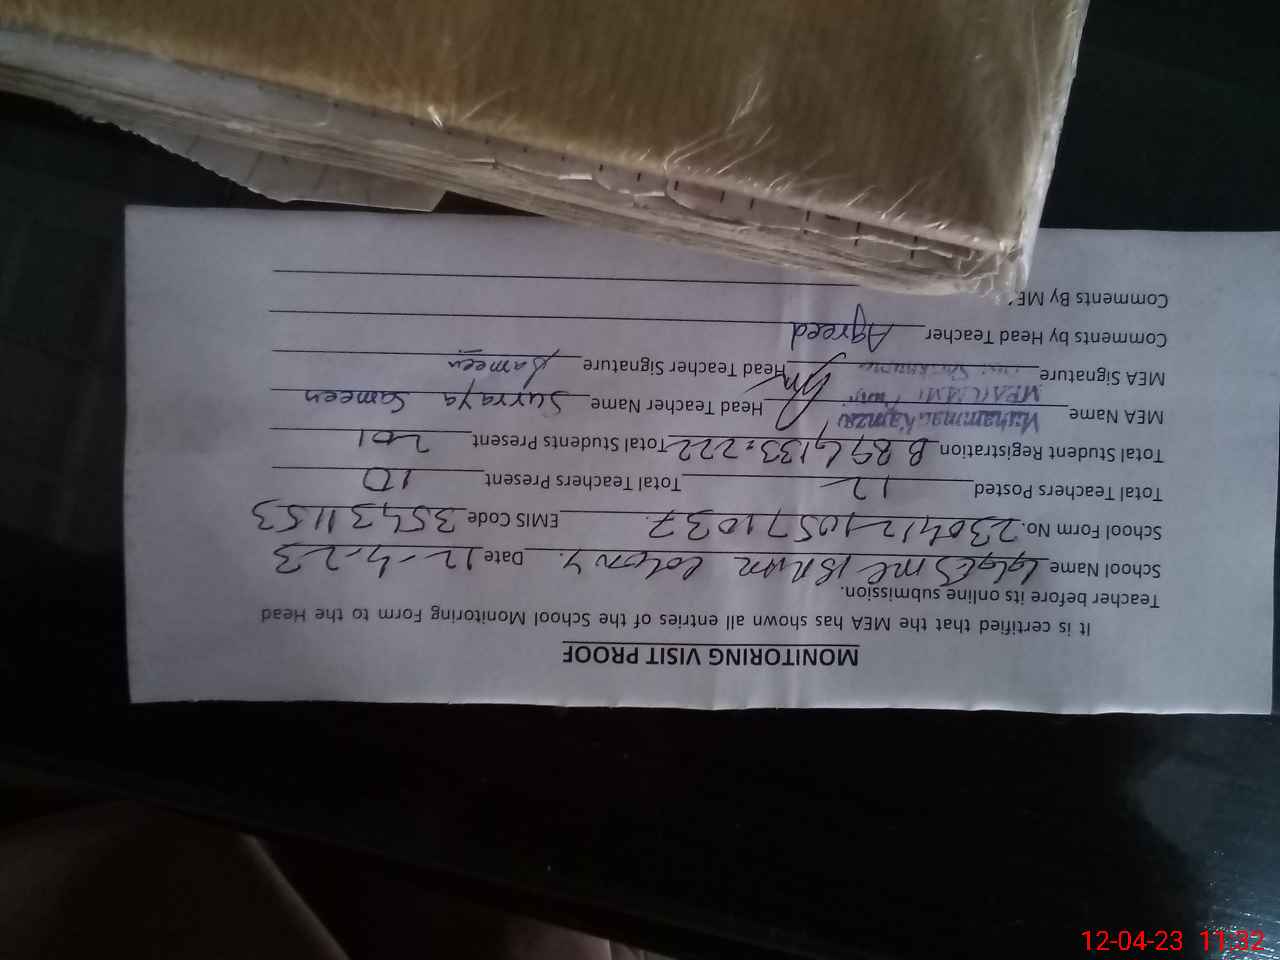 MONITORING VISIT PROOF
It is certified that the MEA has shown all entries of the School Monitoring Form to the Head
Teacher before its online submission.
School Name GGES ME Colony. Date 12-4-23
School Form No. 23041210571037. EMIS Code 35431153
Total Teachers Posted 12 Total Teachers Present 10
Total Student Registration B 89 G 133 = 222 Total Students Present 201
MEA Name Muhammad Head Teacher Name Surraya Sameen
MEA Signature Head Teacher Signature Sameen
Comments by Head Teacher Agreed
Comments By ME
12-04-23 11:32